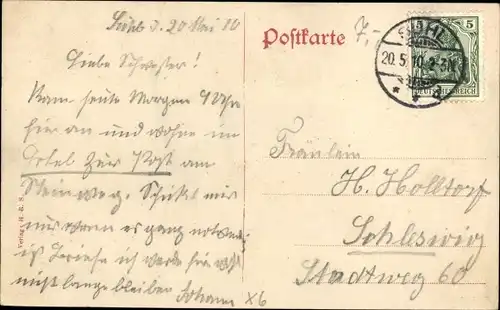 Suhl d. 20 Mai 10
Postkarte
7,-
5
SUHL
20.5.10. 2-3N
DEUTSCHES REICH
Liebe Schwester!
Kam heute Morgen 9 Uhr
hier an und wohne im
Hotel zur Post am
Steinweg. Schickt mir
nur wenn es ganz notwen-
ig Briefe ich werde hier wohl
nicht lange bleiben
Johann
X6
Fräulein
H. Holltorf
Schleswig
Stadtweg 60
Verlag v. H. R. S.